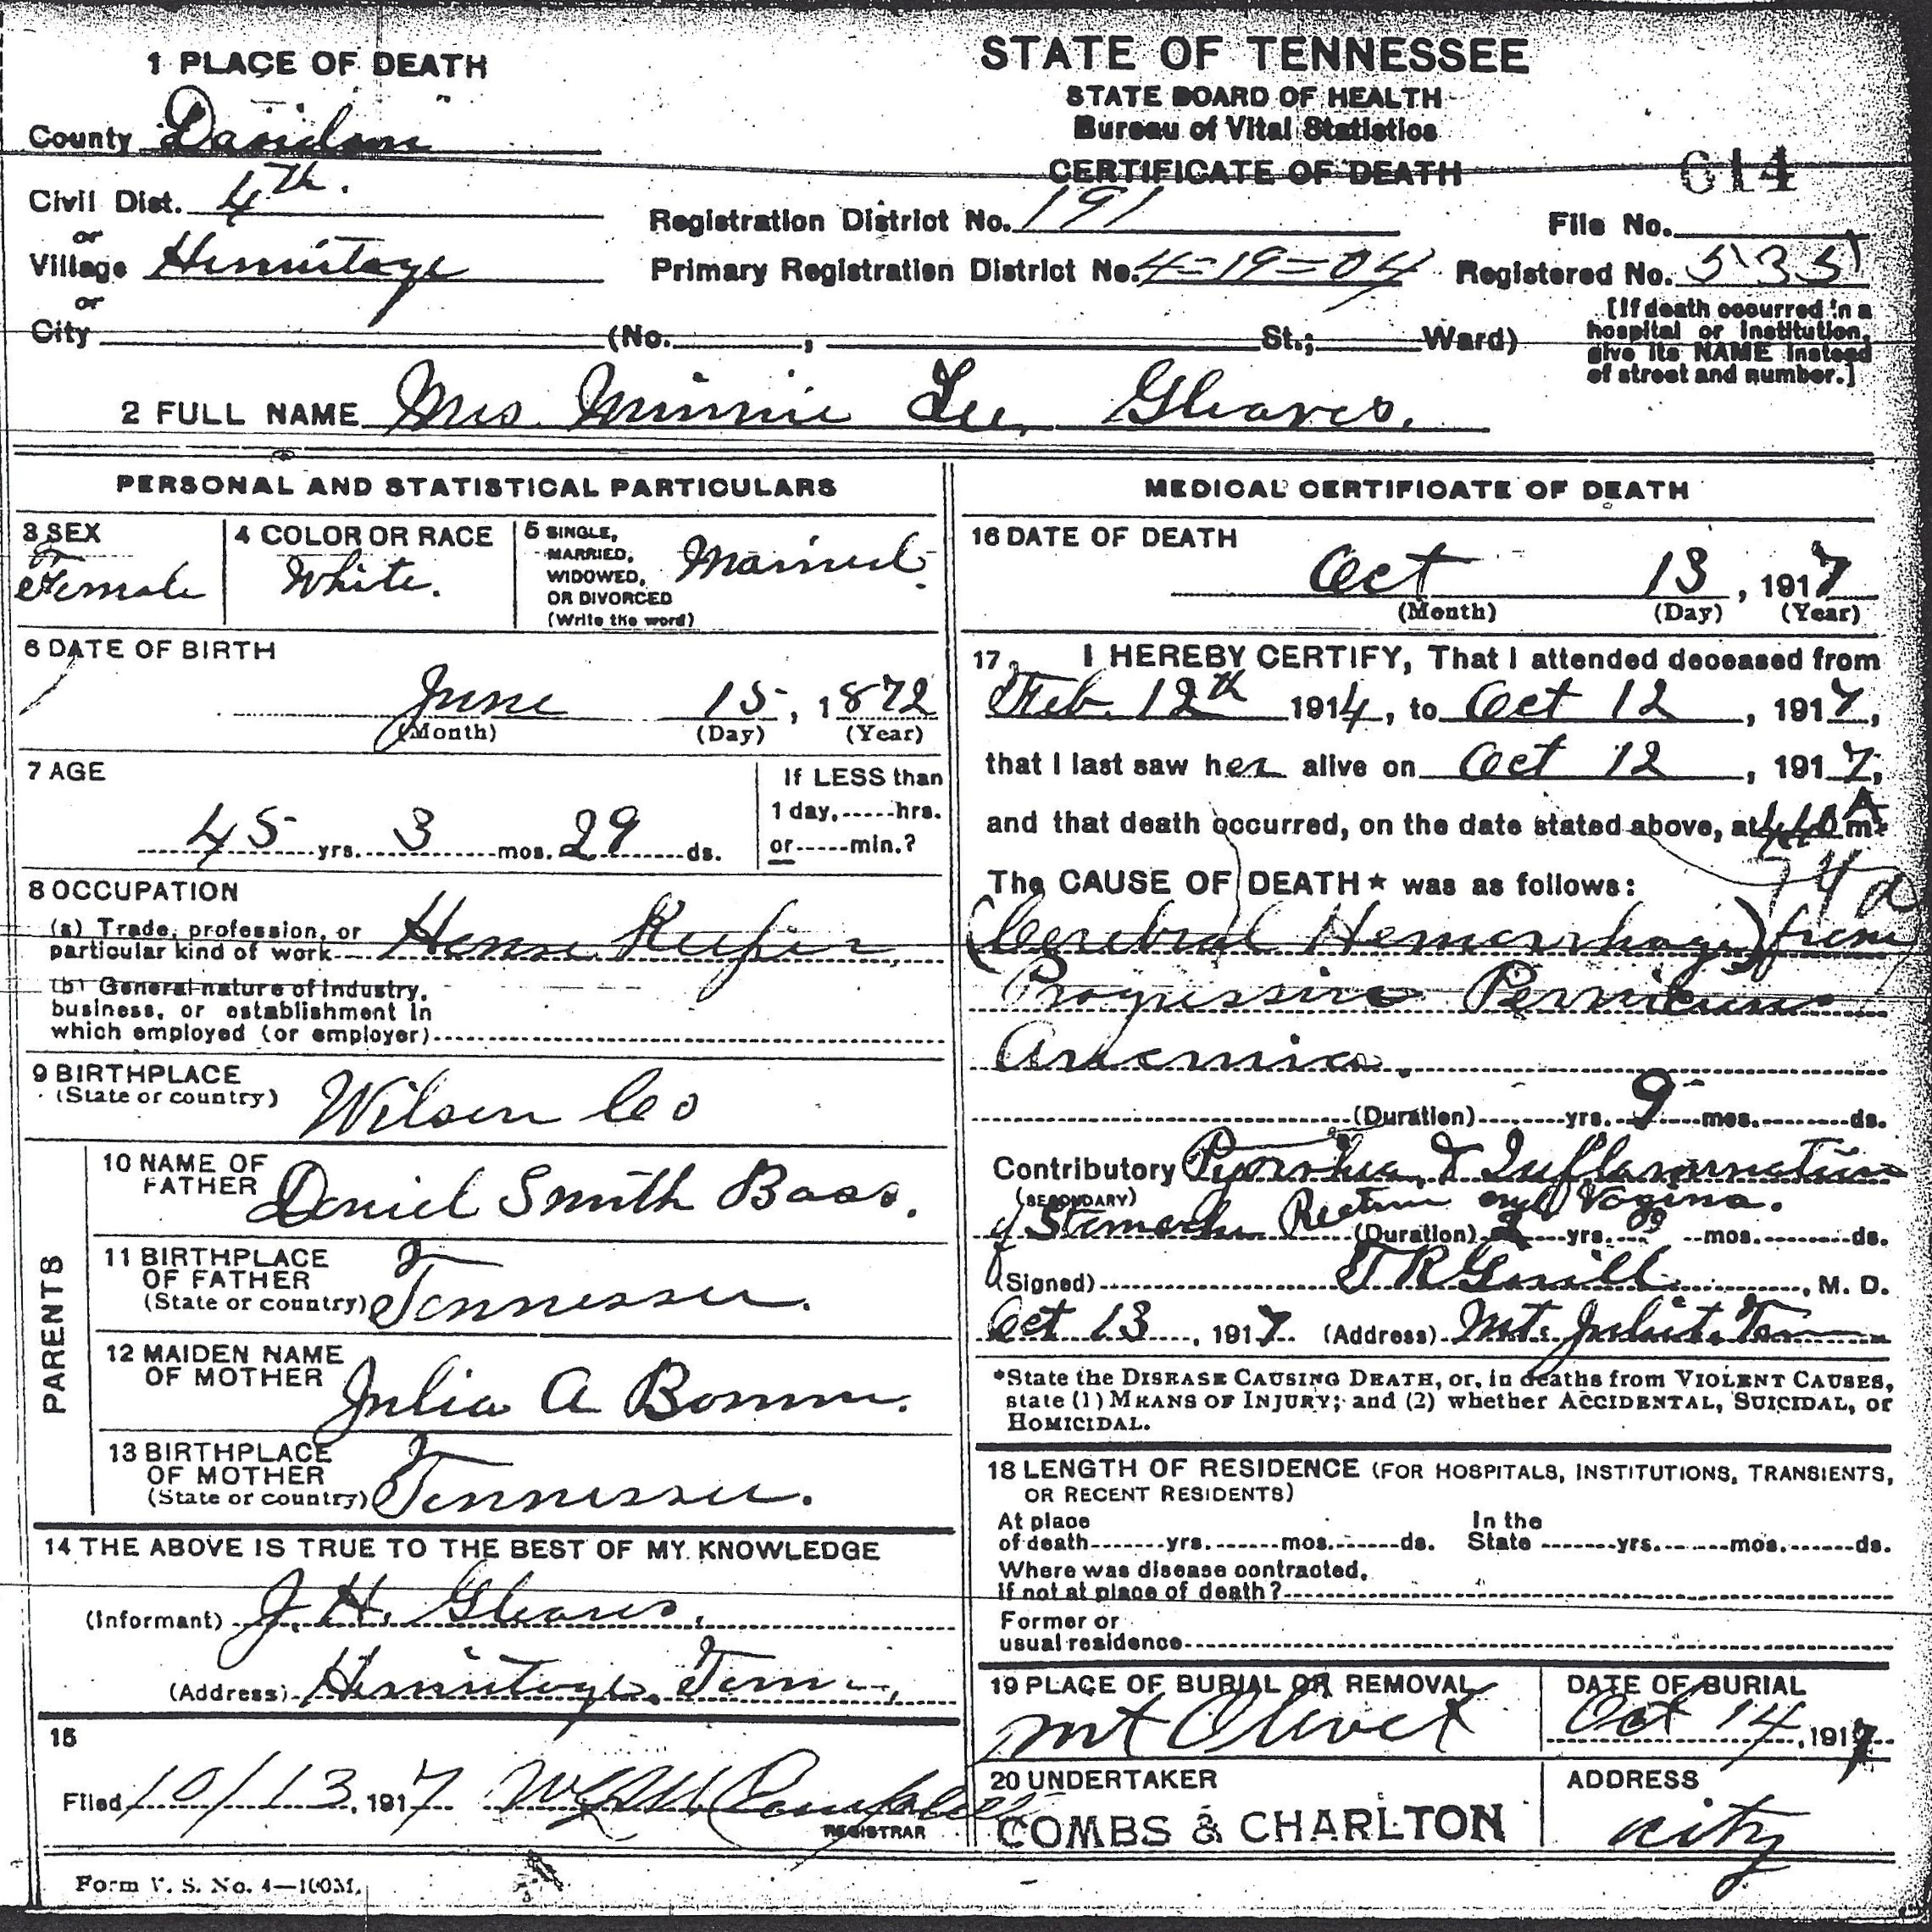 1 PLACE OF DEATH
STATE OF TENNESSEE
STATE BOARD OF HEALTH
Bureau of Vital Statistics
CERTIFICATE OF DEATH
614
County Davidson
Civil Dist. 4th.
or
Village Hermitage
or
City (No. , St.; Ward)
Registration District No. 191
File No.
Primary Registration District No. 4-19-04
Registered No. 535
[If death occurred in a
hospital or institution,
give its NAME instead
of street and number.]
2 FULL NAME Mrs Minnie Lee Gleaves.
PERSONAL AND STATISTICAL PARTICULARS
3 SEX
Female
4 COLOR OR RACE
White.
5 SINGLE,
MARRIED,
WIDOWED,
OR DIVORCED
(Write the word)
Married.
6 DATE OF BIRTH
June 15, 1872
(Month) (Day) (Year)
7 AGE
45 yrs. 3 mos. 29 ds.
If LESS than
1 day, hrs.
or min.?
8 OCCUPATION
(a) Trade, profession, or
particular kind of work House Keeper
(b) General nature of industry,
business, or establishment in
which employed (or employer)
9 BIRTHPLACE
(State or country) Wilson Co
PARENTS
10 NAME OF
FATHER Daniel Smith Bass.
11 BIRTHPLACE
OF FATHER
(State or country) Tennessee.
12 MAIDEN NAME
OF MOTHER Julia A
13 BIRTHPLACE
OF MOTHER
(State or country) Tennessee.
14 THE ABOVE IS TRUE TO THE BEST OF MY KNOWLEDGE
(Informant) J. H. Gleaves.
(Address) Hermitage, Tenn.
15
Filed 10/13, 1917 Campbell
REGISTRAR
Form V. S. No. 4—100M.
MEDICAL CERTIFICATE OF DEATH
16 DATE OF DEATH
Oct 13, 1917
(Month) (Day) (Year)
17 I HEREBY CERTIFY, That I attended deceased from
Feb. 12th 1914, to Oct 12, 1917,
that I last saw her alive on Oct 12, 1917,
and that death occurred, on the date stated above, at A m.
The CAUSE OF DEATH* was as follows:
74a
(Cerebral Hemorrhage) from
Progressive Pernicious
Anemia.
(Duration) yrs. 9 mos. ds.
Contributory Pyorrhea, & Inflammation
(SECONDARY)
of Stomach Rectum and Vagina.
(Duration) 2 yrs. mos. ds.
(Signed) , M. D.
Oct 13, 1917 (Address) Mt. Juliet. Tenn
*State the DISEASE CAUSING DEATH, or, in deaths from VIOLENT CAUSES,
state (1) MEANS OF INJURY; and (2) whether ACCIDENTAL, SUICIDAL, or
HOMICIDAL.
18 LENGTH OF RESIDENCE (FOR HOSPITALS, INSTITUTIONS, TRANSIENTS,
OR RECENT RESIDENTS)
At place
of death yrs. mos. ds.
In the
State yrs. mos. ds.
Where was disease contracted,
if not at place of death?
Former or
usual residence
19 PLACE OF BURIAL OR REMOVAL
Mt Olivet
DATE OF BURIAL
Oct 14, 1917
20 UNDERTAKER
COMBS & CHARLTON
ADDRESS
city